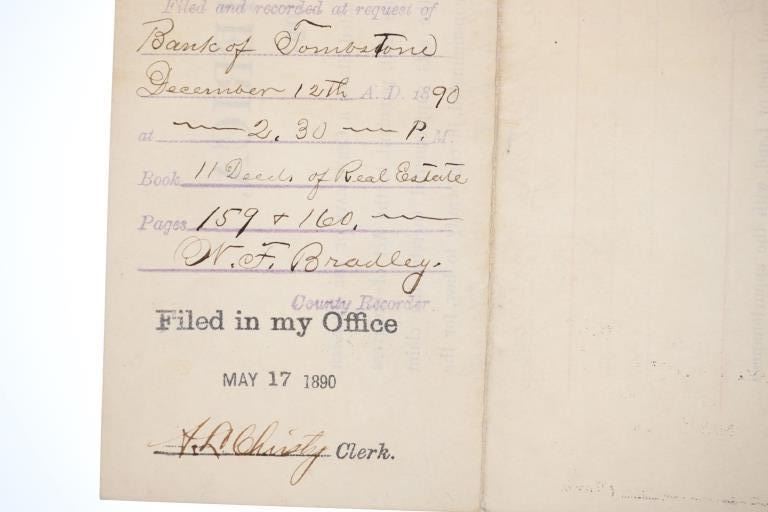 Filed and recorded at request of
Bank of Tombstone
December 12th A.D. 1890
at 2.30 P. M.
Book 11 Deeds of Real Estate
Pages 159 & 160.
W. F. Bradley.
County Recorder.
Filed in my Office
MAY 17 1890
Christy Clerk.